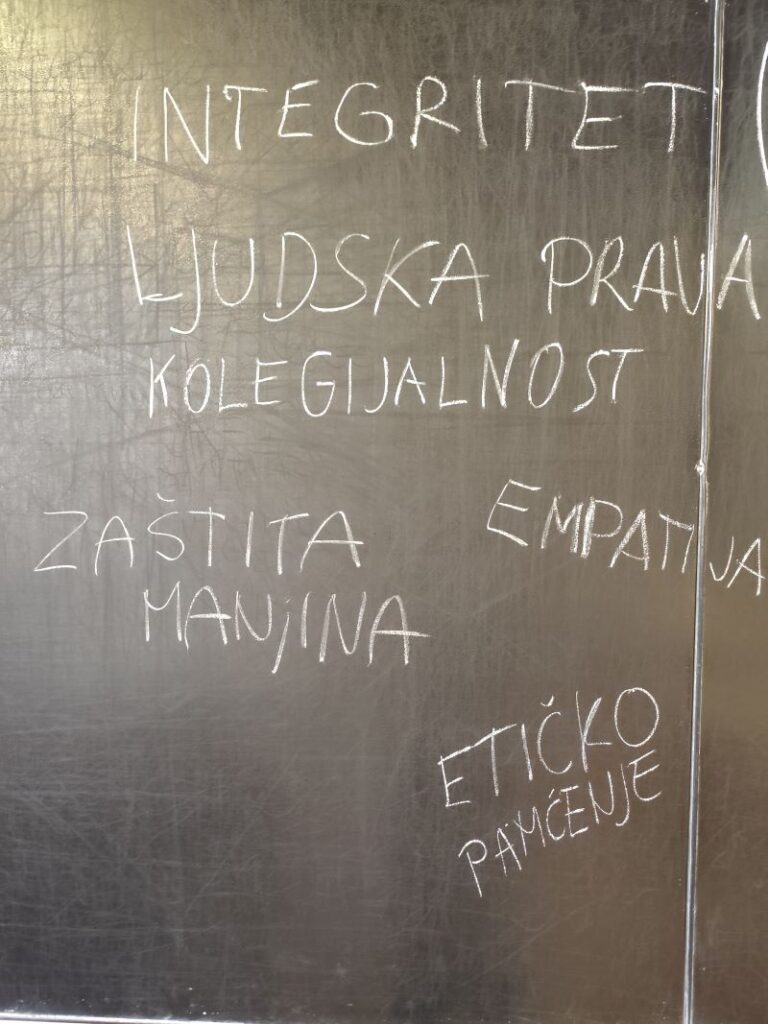 INTEGRITET (
LJUDSKA PRAVA
KOLEGIJALNOST
ZAŠTITA
MANjINA
EMPATIJA
ETIČKO
PAMĆENJE